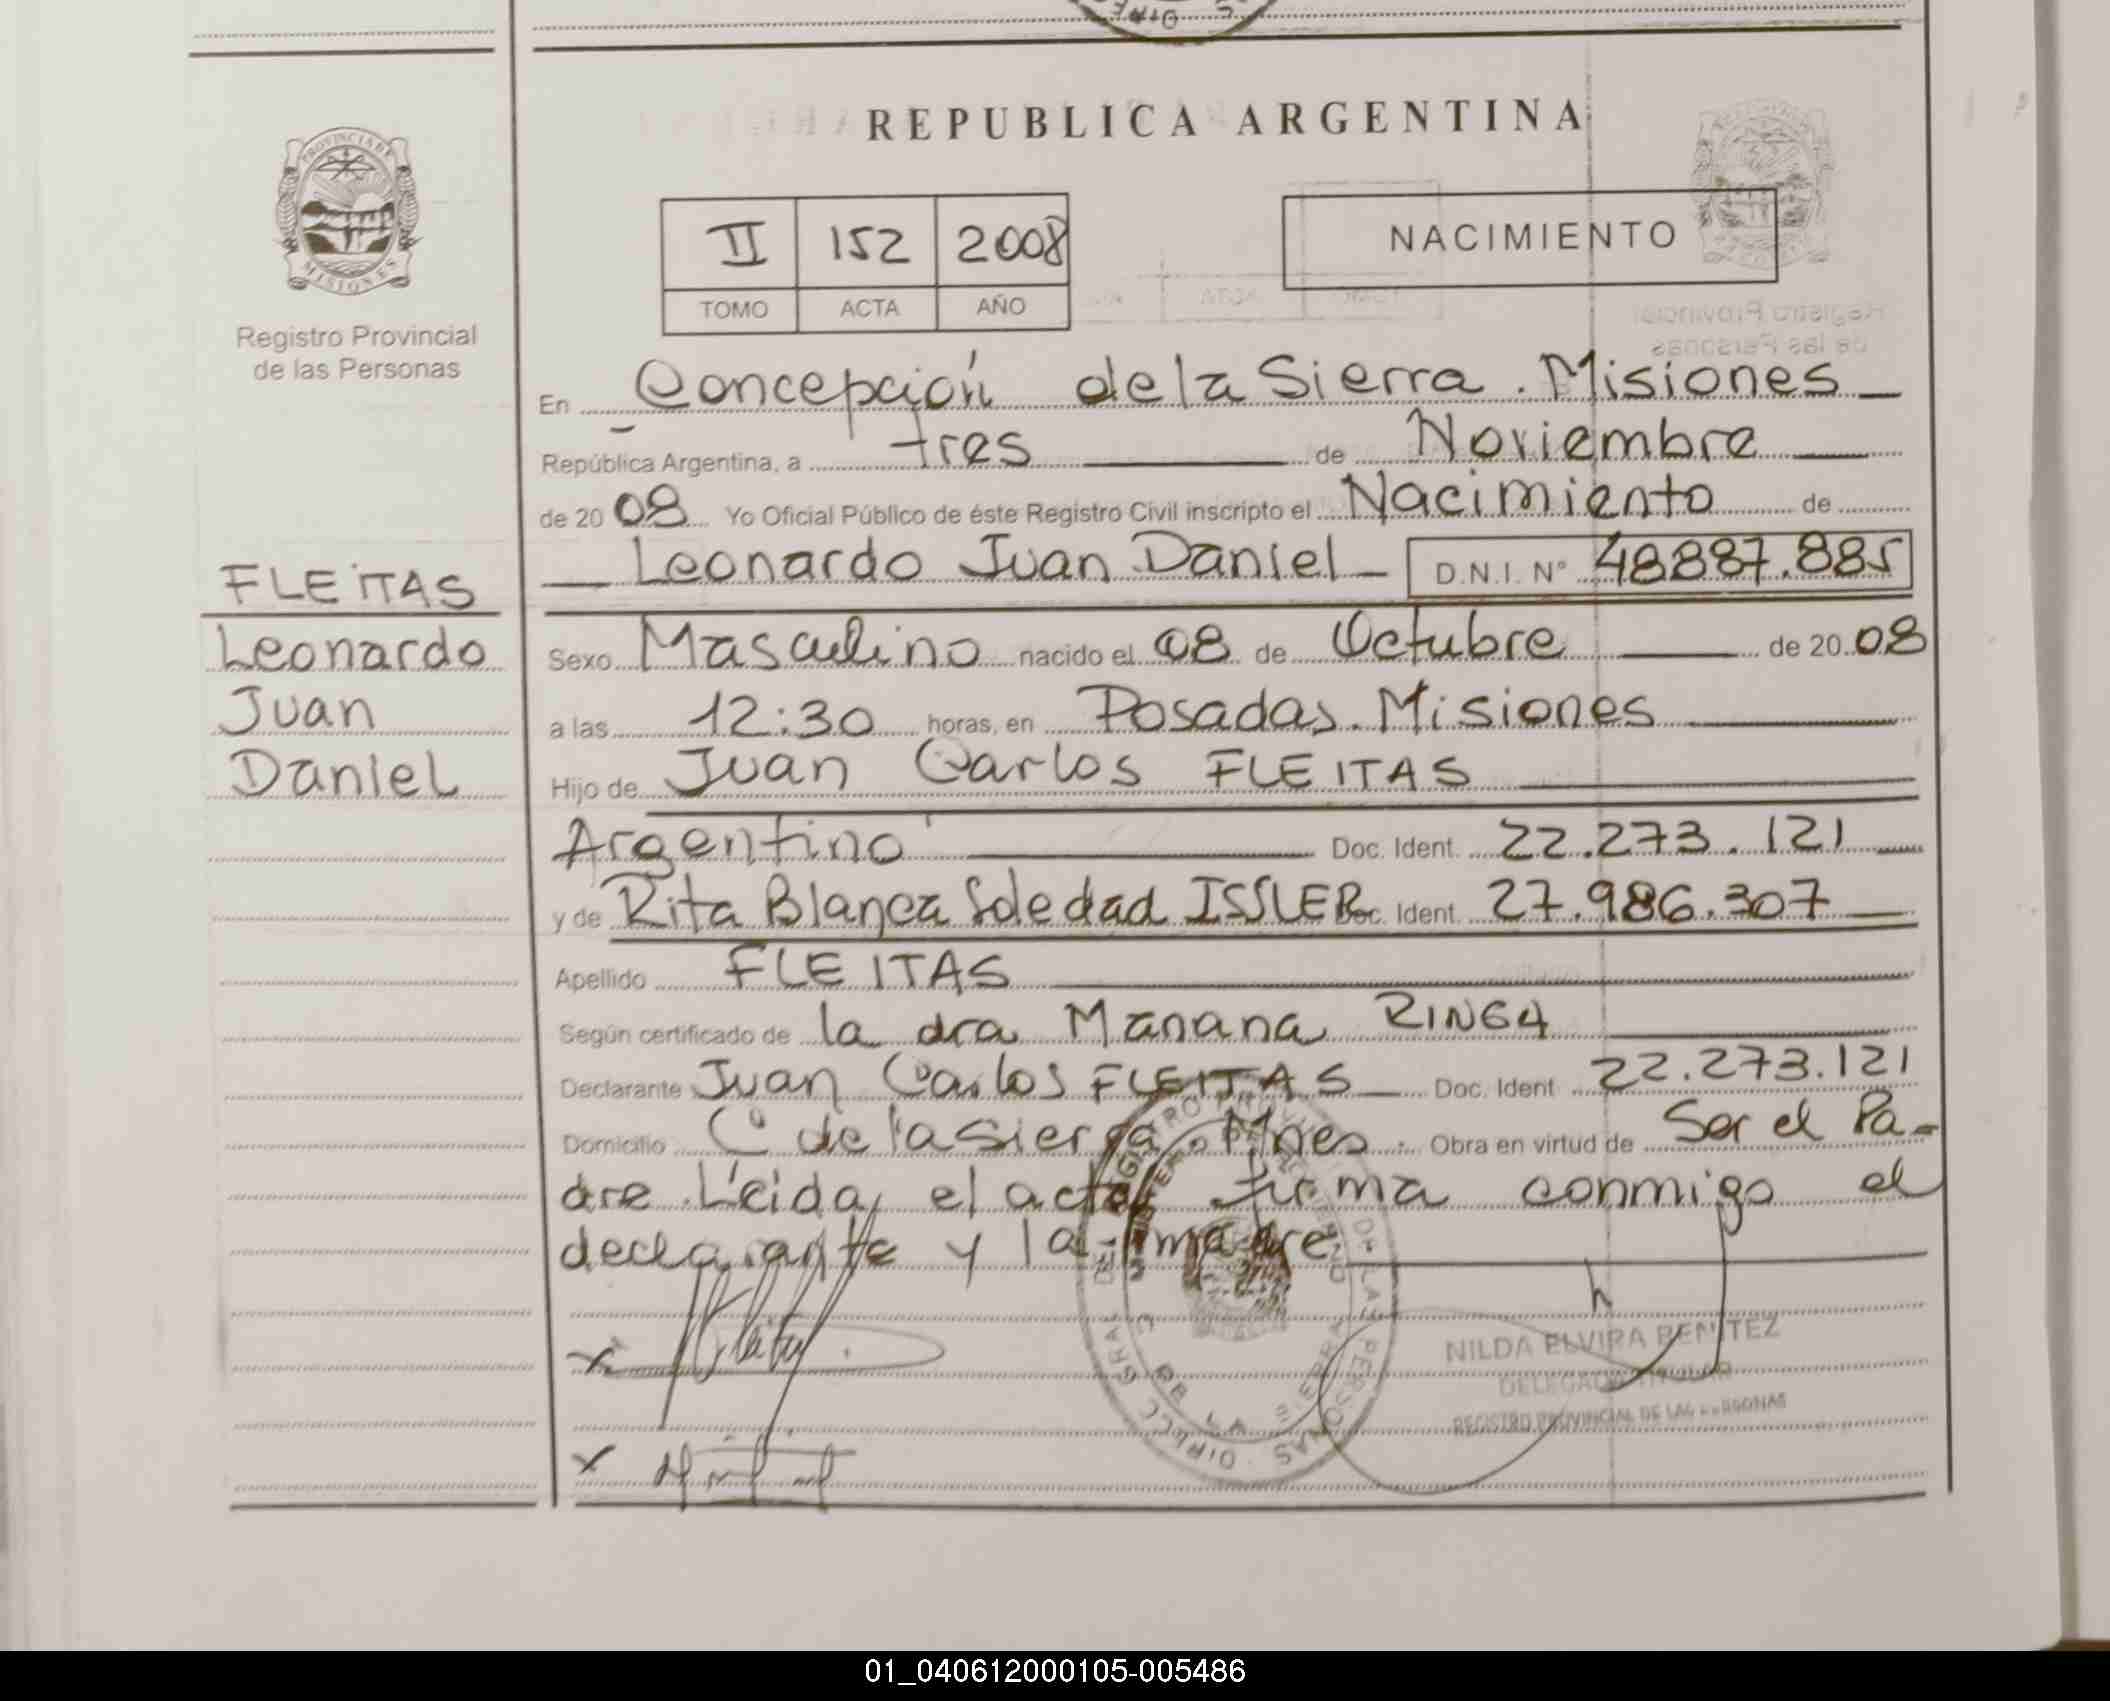 REPUBLICA ARGENTINA
PROVINCIA DE
MISIONES
Registro Provincial
de las Personas
II 152 2008
TOMO ACTA AÑO
NACIMIENTO
En Concepción de la Sierra. Misiones
República Argentina, a tres de Noviembre
de 2008 Yo Oficial Público de éste Registro Civil inscripto el Nacimiento de
Leonardo Juan Daniel D.N.I. N° 48887.885
FLEITAS
Leonardo
Juan
Daniel
Sexo Masculino nacido el 08 de Octubre de 2008
a las 12:30 horas, en Posadas. Misiones
Hijo de Juan Carlos FLEITAS
Argentino Doc. Ident. 22.273.121
y de Rita Blanca Soledad ISSLER Doc. Ident. 27.986.307
Apellido FLEITAS
Según certificado de la dra RINGA
Declarante Juan Carlos FLEITAS Doc. Ident 22.273.121
Domicilio C de la Sierra. Mnes. Obra en virtud de Ser el Pa-
dre. Leida, el acta firma conmigo el
declarante y la madre
NILDA ELVIRA BENITEZ
DELEGADA TITULAR
REGISTRO PROVINCIAL DE LAS PERSONAS
01_040612000105-005486